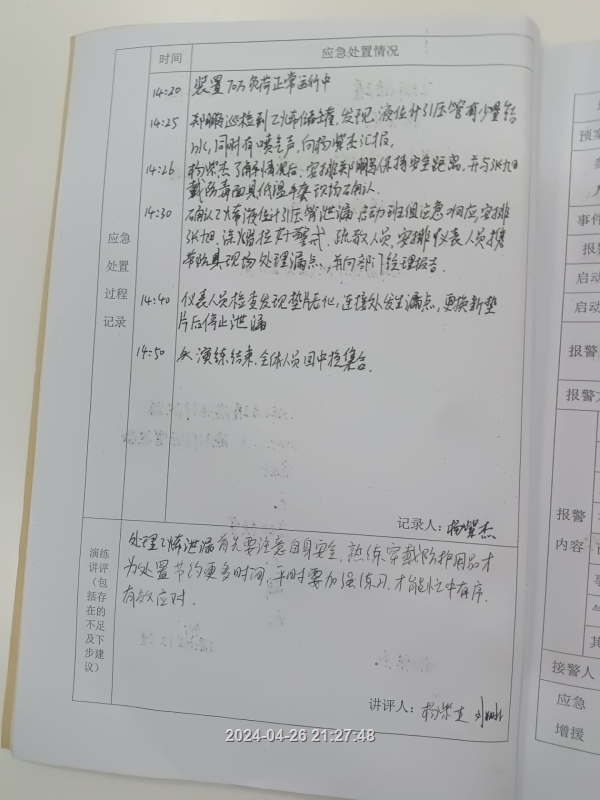 时间 应急处置情况
14:20 装置70%负荷正常运行中
14:25 郑鹏巡检到乙烯储罐,发现液位计引压管有少量结
冰,同时有喷气声,向杨紫杰汇报。
14:26 杨紫杰了解情况后,安排郑鹏保持安全距离,并与张旭
戴防毒面具低温手套现场确认.
14:30 确认乙烯液位计引压管泄漏,启动班组应急响应,安排
张旭、涂 拉好警戒、疏散人员,安排仪表人员携
带防具现场处理漏点,并向部门经理报告.
应急
处置
过程
记录
14:40 仪表人员检查发现垫片老化,连接处发生漏点,更换新垫
片后停止泄漏
14:50 演练结束,全体人员回中控集合.
记录人:杨紫杰
演练
讲评
(包
括存
在的
不足
及下
步建
议)
处理乙烯泄漏首先要注意自身安全,熟练穿戴防护用品才
为处置节约更多时间,平时要加强练习,才能忙中有序.
有效应对.
讲评人:杨紫杰
预案
事件
报警
启动
启动
报警人
报警方
报警
内容
接警人
应急
增援
2024-04-26 21:27:48